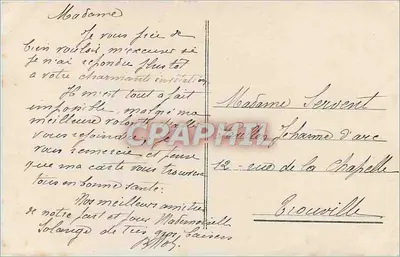 Madame
Je vous prie de
bien vouloir m'excuser si
je n'ai répondu plus tôt
a votre charmante invitation
Il m'est tout a fait
impossible malgré ma
meilleure volonté d'aller
vous rejoindre. Je
vous remercie et pense
que ma carte vous trouvera
tous en bonne santé.
Nos meilleurs amitiés
de notre part et pour Mademoiselle
Solange de tres gros baisers
Madame Servent
Jehanne d'arc
12 - rue de la Chapelle
Trouville
CPAPHIL